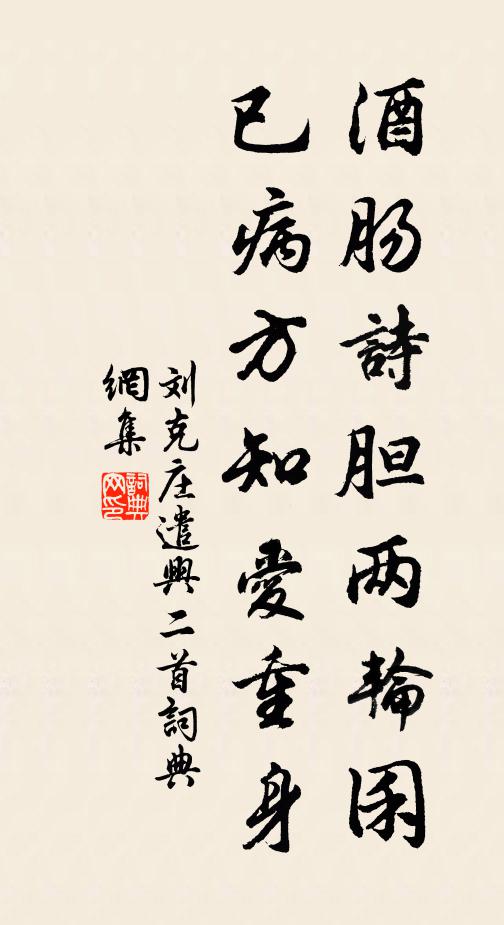 酒肠詩胆两輪囷
已病方知愛重身
刘克庄遣興二首詞典
網集
詞典网印